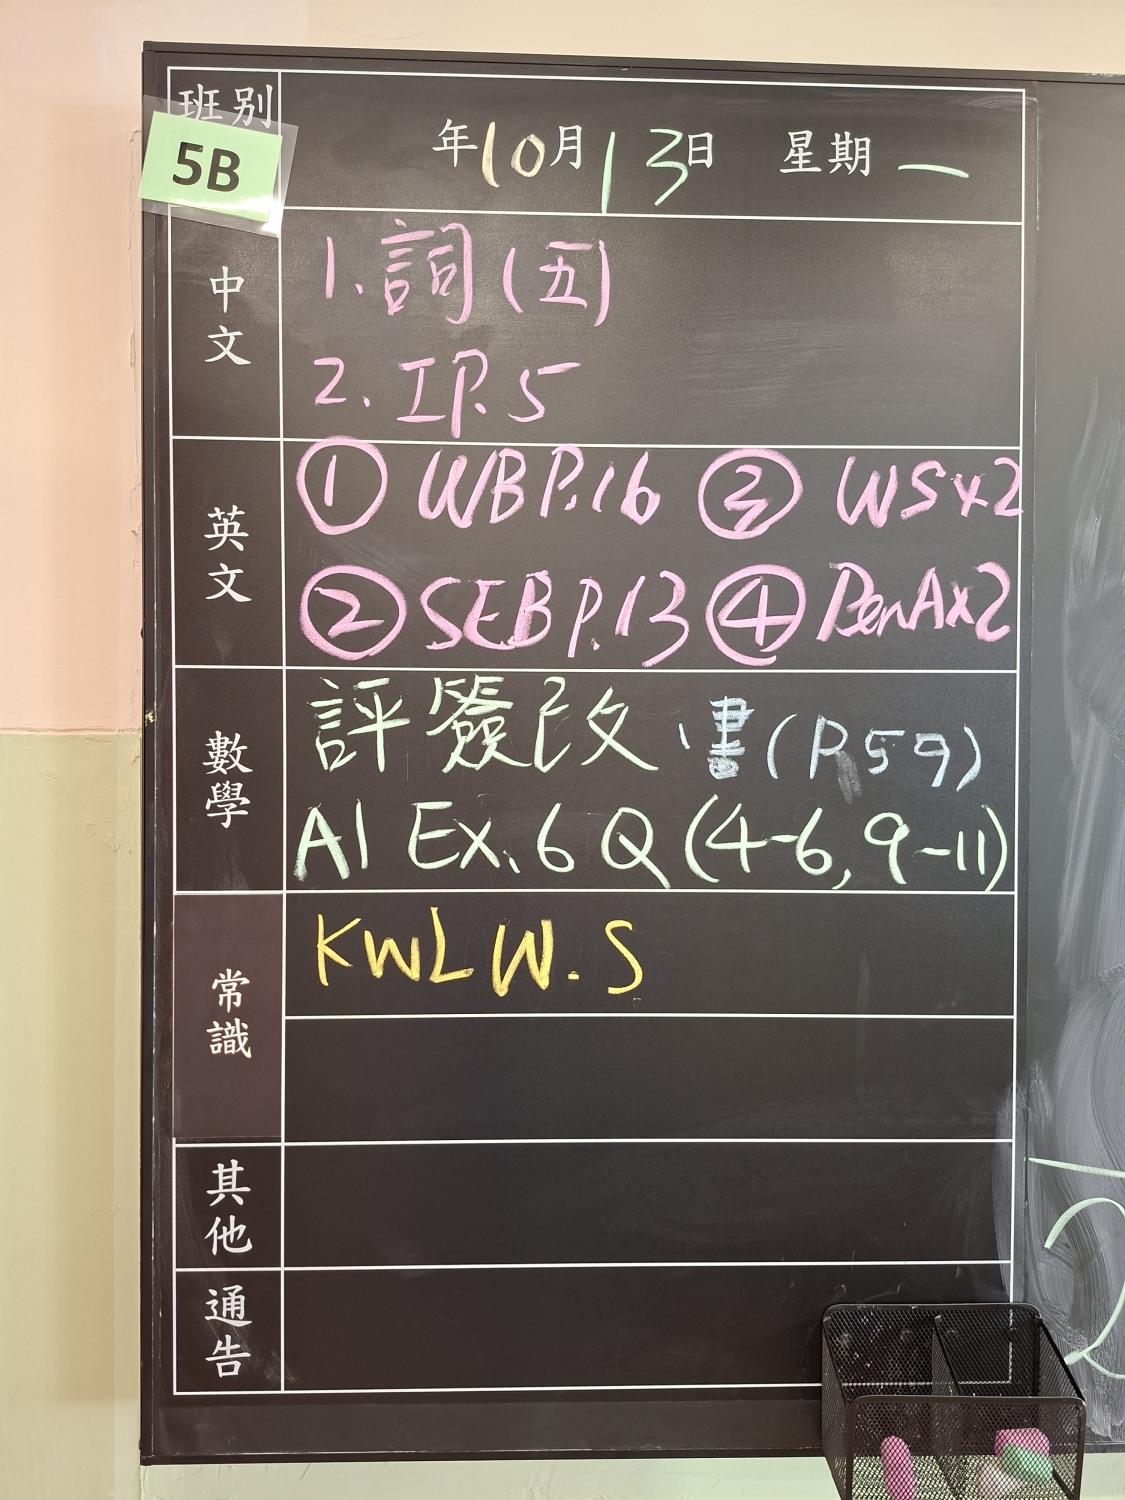 班別
5B
年10月13日 星期一
中文
1.詞(五)
2.工P.5
英文
① WB P.16 ③ WS x2
② SEB P.13 ④ PenA x2
數學
評簽改、書(P.59)
A1 Ex.6 Q(4-6,9-11)
常識
KWL W.S
其他
通告